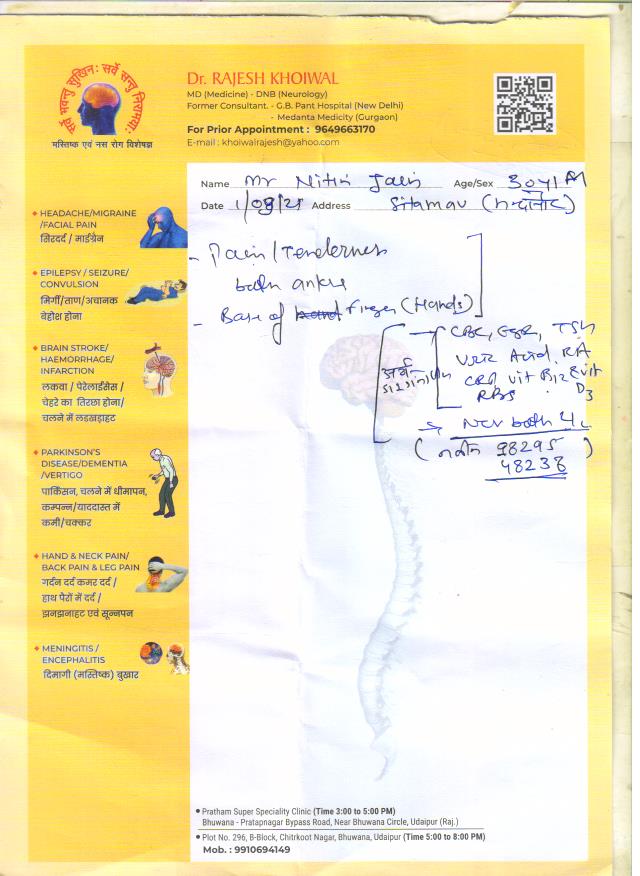 सर्वे भवन्तु सुखिनः सर्वे सन्तु निरामयाः
मस्तिष्क एवं नस रोग विशेषज्ञ
Dr. RAJESH KHOIWAL
MD (Medicine) - DNB (Neurology)
Former Consultant. - G.B. Pant Hospital (New Delhi)
- Medanta Medicity (Gurgaon)
For Prior Appointment : 9649663170
E-mail : khoiwalrajesh@yahoo.com
Name Mr Nitin Jain Age/Sex 30y/M
Date 1/08/21 Address Sitamau
- Pain/Tenderness
both ankle
- Base of Finger (Hands)
→ CBC, ESR, TSH
Uric Acid, RA
CRP, vit B12 & vit D3
RBS
→ NCV both
98295
48238
HEADACHE/MIGRAINE
/FACIAL PAIN
सिरदर्द / माईग्रेन
EPILEPSY / SEIZURE/
CONVULSION
मिर्गी/ताण/अचानक
बेहोश होना
BRAIN STROKE/
HAEMORRHAGE/
INFARCTION
लकवा / पेरेलाईसेस/
चेहरे का तिरछा होना/
चलने में लडखड़ाहट
PARKINSON'S
DISEASE/DEMENTIA
/VERTIGO
पार्किसन, चलने में धीमापन,
कम्पन्न/याददास्त में
कमी/चक्कर
HAND & NECK PAIN/
BACK PAIN & LEG PAIN
गर्दन दर्द कमर दर्द /
हाथ पैरों में दर्द /
झनझनाहट एवं सूनपन
MENINGITIS /
ENCEPHALITIS
दिमागी (मस्तिष्क) बुखार
Pratham Super Speciality Clinic (Time 3:00 to 5:00 PM)
Bhuwana - Pratapnagar Bypass Road, Near Bhuwana Circle, Udaipur (Raj.)
Plot No. 296, B-Block, Chitrkoot Nagar, Bhuwana, Udaipur (Time 5:00 to 8:00 PM)
Mob. : 9910694149